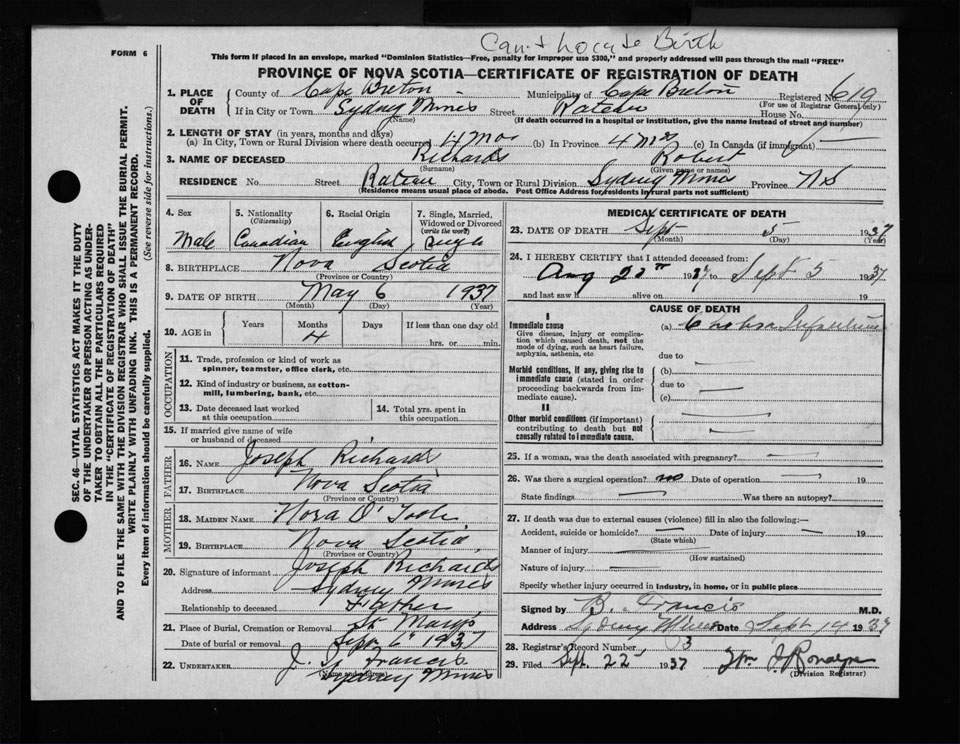 Can't Locate Birth
FORM 6
This form if placed in an envelope, marked "Dominion Statistics—Free, penalty for improper use $300," and properly addressed will pass through the mail "FREE"
PROVINCE OF NOVA SCOTIA—CERTIFICATE OF REGISTRATION OF DEATH
SEC. 46—VITAL STATISTICS ACT MAKES IT THE DUTY
OF THE UNDERTAKER OR PERSON ACTING AS UNDER-
TAKER TO OBTAIN ALL THE PARTICULARS REQUIRED
IN THE "CERTIFICATE OF REGISTRATION OF DEATH"
AND TO FILE THE SAME WITH THE DIVISION REGISTRAR WHO SHALL ISSUE THE BURIAL PERMIT.
WRITE PLAINLY WITH UNFADING INK. THIS IS A PERMANENT RECORD.
Every item of information should be carefully supplied. (See reverse side for instructions.)
1. PLACE OF DEATH
County of Cape Breton Municipality of Cape Breton Registered No. 619
(For use of Registrar General only)
If in City or Town Sydney Mines Street House No.
(Name) (If death occurred in a hospital or institution, give the name instead of street and number)
2. LENGTH OF STAY (in years, months and days)
(a) In City, Town or Rural Division where death occurred 4 mos (b) In Province 4 mos (c) In Canada (if immigrant)
3. NAME OF DECEASED Richards Robert
(Surname) (Given name or names)
RESIDENCE No. Street City, Town or Rural Division Sydney Mines Province NS
(Residence means usual place of abode. Post Office Address for residents in rural parts not sufficient)
4. Sex 5. Nationality (Citizenship) 6. Racial Origin 7. Single, Married, Widowed or Divorced (write the word)
Male Canadian English Single
8. BIRTHPLACE Nova Scotia
(Province or Country)
9. DATE OF BIRTH May 6 1937
(Month) (Day) (Year)
10. AGE in Years Months Days If less than one day old
4 hrs. or min.
OCCUPATION
11. Trade, profession or kind of work as
spinner, teamster, office clerk, etc.
12. Kind of industry or business, as cotton-
mill, lumbering, bank, etc.
13. Date deceased last worked at this occupation
14. Total yrs. spent in this occupation
15. If married give name of wife
or husband of deceased
FATHER
16. NAME Joseph Richards
17. BIRTHPLACE Nova Scotia
(Province or Country)
MOTHER
18. MAIDEN NAME Nora O'Toole
19. BIRTHPLACE Nova Scotia
(Province or Country)
20. Signature of informant Joseph Richards
Address Sydney Mines
Relationship to deceased Father
21. Place of Burial, Cremation or Removal St Marys
Date of burial or removal Sept 6 1937
22. UNDERTAKER J. Francis
(Name and address) Sydney Mines
MEDICAL CERTIFICATE OF DEATH
23. DATE OF DEATH Sept 5 1937
(Month) (Day) (Year)
24. I HEREBY CERTIFY that I attended deceased from:
Aug 1937 to Sept 5 1937
and last saw h alive on 19
CAUSE OF DEATH
I
Immediate cause
Give disease, injury or complica-
tion which caused death, not the
mode of dying, such as heart failure,
asphyxia, asthenia, etc
(a) Cholera Infantum
due to
Morbid conditions, if any, giving rise to
immediate cause (stated in order
proceeding backwards from im-
mediate cause).
(b)
due to
(c)
II
Other morbid conditions (if important)
contributing to death but not
causally related to immediate cause.
25. If a woman, was the death associated with pregnancy?
26. Was there a surgical operation? no Date of operation 19
State findings Was there an autopsy?
27. If death was due to external causes (violence) fill in also the following:—
Accident, suicide or homicide? Date of injury 19
(State which)
Manner of injury
(How sustained)
Nature of injury
Specify whether injury occurred in industry, in home, or in public place
Signed by B. Francis M.D.
Address Sydney Mines Date Sept 14 1937
28. Registrar's Record Number 3
29. Filed Sept. 22 1937
(Division Registrar)